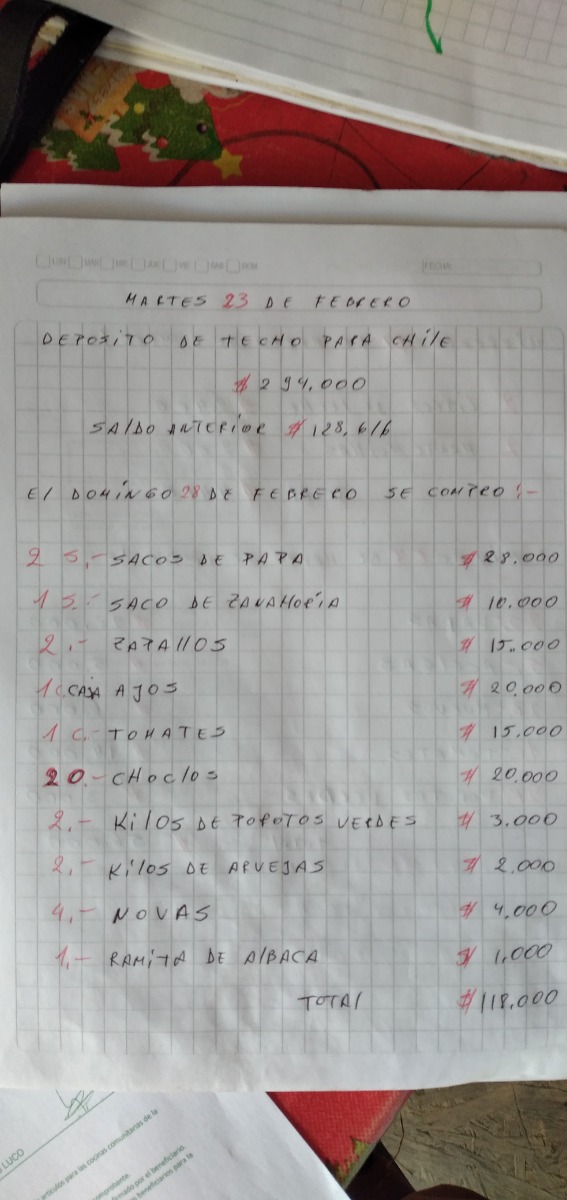 LUN MAR MIE JUE VIE SAB DOM FECHA
MARTES 23 DE FEBRERO
DEPOSITO DE TECHO PARA CHILE
$ 294.000
SALDO ANTERIOR $ 128.616
El DOMINGO 28 DE FEBRERO SE COMPRO :-
2 S.- SACOS DE PAPA $ 28.000
1 S.- SACO DE ZANAHORIA $ 10.000
2.- ZAPALLOS $ 15.000
1 C. CAJA AJOS $ 20.000
1 C.- TOMATES $ 15.000
20.- CHOCLOS $ 20.000
2.- KILOS DE POROTOS VERDES $ 3.000
2.- KILOS DE ARVEJAS $ 2.000
4.- NOVAS $ 4.000
1.- RAMITA DE ALBACA $ 1.000
TOTAL $ 118.000
LUCO
artículos para las cocinas comunitarias de la
comprobante.
firmado por el beneficiario.
beneficiarios para la